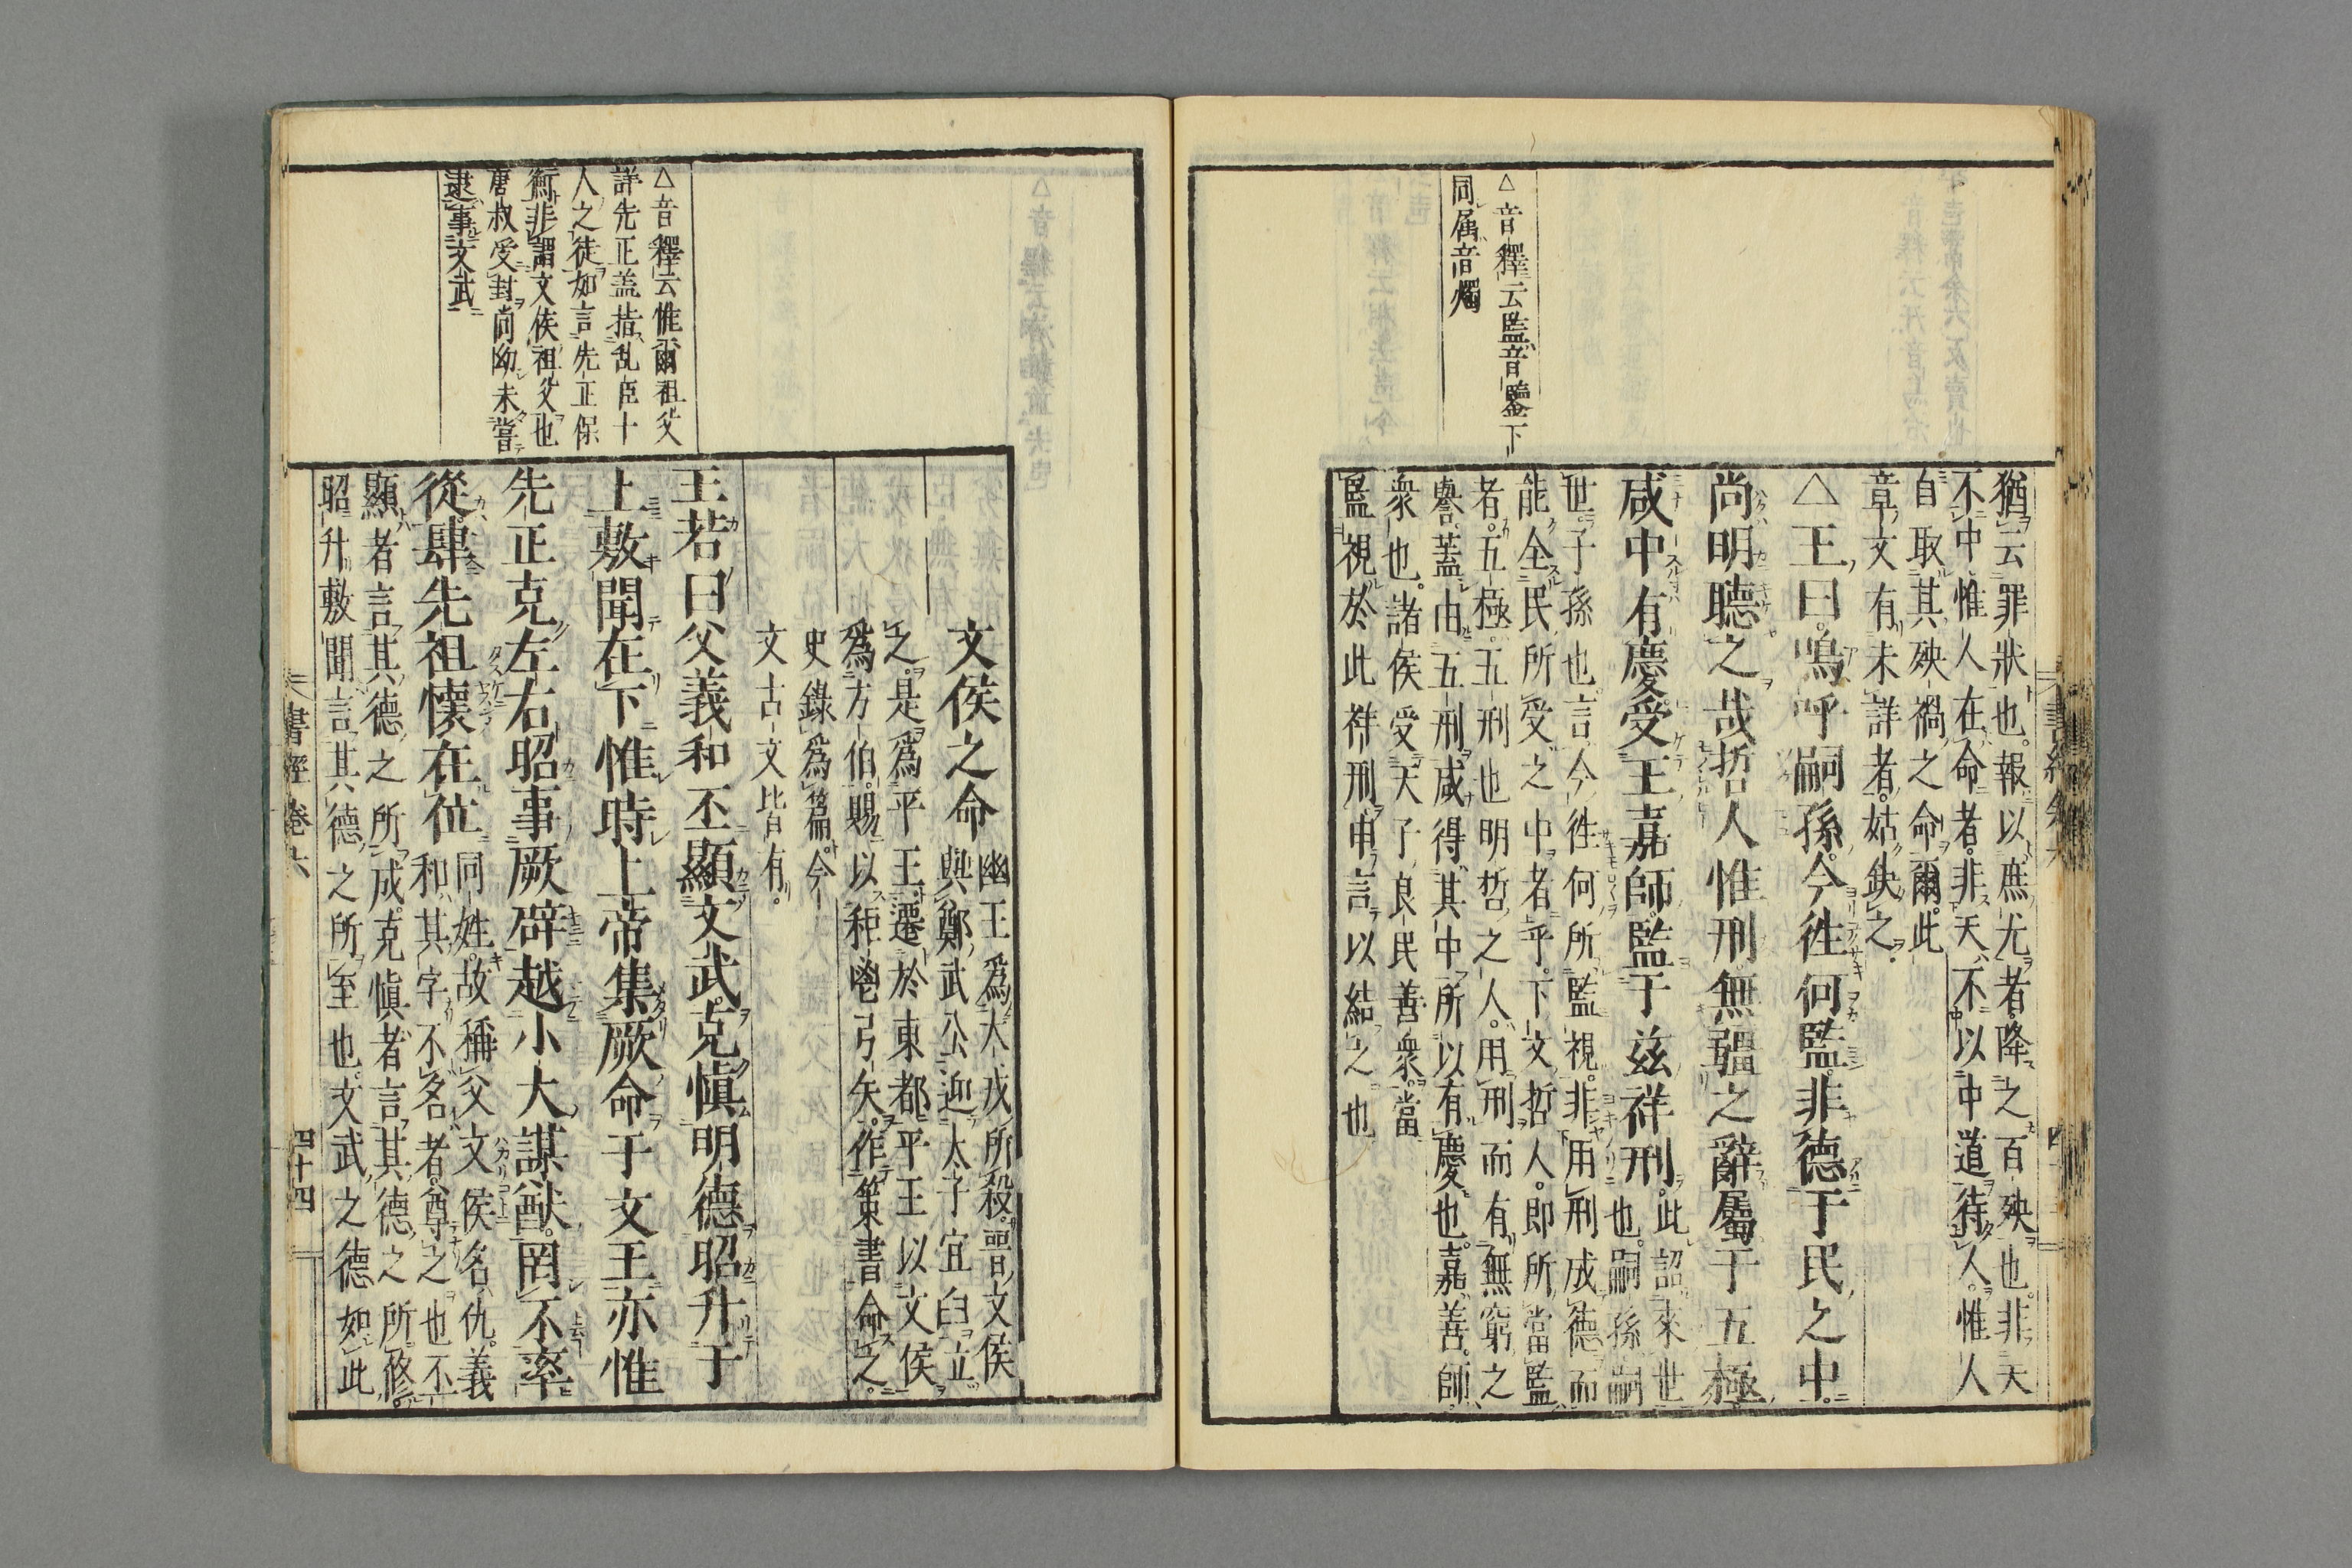 △音釋云監音鑒下
同属音燭
猶云罪狀也。報以庶尤者。降之百殃也。非天
不中惟人在命者。非天不以中道待人。惟人
自取其殃禍之命爾。此
章文有未詳者。姑缺之。
△王曰。嗚呼嗣孫。今徃何監。非德于民之中。
尚明聽之哉哲人惟刑。無疆之辭屬于五極
咸中有慶受王嘉師監于兹祥刑。此詔來世
也。嗣孫嗣
世。子孫也言今徃何所監視。非用刑成德而
能全民所受之中者乎。下文哲人。即所當監
者。五極。五刑也明哲之人。用刑而有無窮之
譽。蓋由五刑咸得其中所以有慶也。嘉善。師
衆也。諸侯受天子良民善衆。當
監視於此祥刑申言以結之也
△音釋云惟爾祖父
詳先正蓋指乱臣十
人之徒如言先正保
衡非謂文侯祖父也
唐叔受封尚幼未嘗
逮事文武
文侯之命 幽王爲犬戎所殺。晋文侯
與鄭武公迎太子宜臼立
之。是爲平王遷於東都平王以文侯
爲方伯。賜以秬鬯弓矢。作策書命之。
史錄爲篇。今
文古文皆有。
王若曰父義和丕顯文武克愼明德昭升于
上敷聞在下惟時上帝集厥命于文王亦惟
先正克左右昭事厥辟越小大謀猷罔不率
從肆先祖懷在位 同姓。故稱父文侯名仇。義
和其字不名者。尊之也不
顯者言其德之所成。克愼者言其德之所修。
昭升敷聞言其德之所至也。文武之德如此
書經巻六
四十四